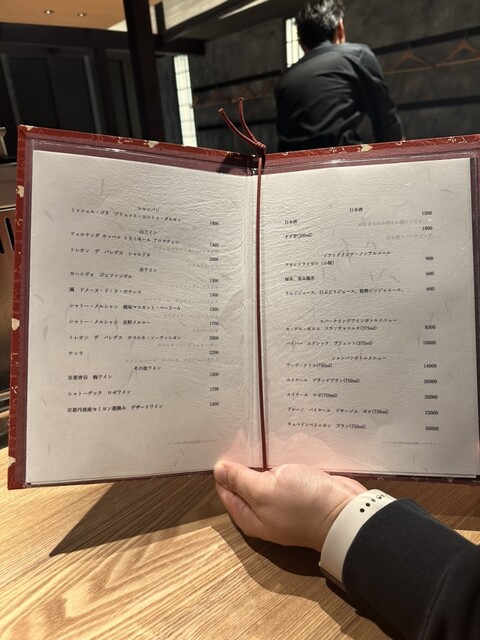 シャンパン
ミッシェル・ゴネ ブリュット・ロントゥ・ダルモン
1800
白ワイン
フェルナンダ カッペロ トラミネール アロマティコ
1400
トレオン デ パレデス シャルドネ
2000
赤ワイン
カールヴォ ジェファンゲル
1300
風 ドメーヌ・ド・ラ・ボランス
1500
シャトー・メルシャン 穂坂マスカット・ベーリーA
1500
シャトー・メルシャン 長野メルロー
1700
トレオン デ パレデス カベルネ・ソーヴィニヨン
2000
テッラ
2200
その他ワイン
京都青谷 梅ワイン
1300
シャトーデック ロゼワイン
1700
京都丹波産セミヨン遅摘み デザートワイン
1500
日本酒
日本酒
1500
すず音(300ml)
1800
ソフトドリンク・ノンアルコール
アサヒドライゼロ (小瓶)
900
緑茶、黒烏龍茶
600
りんごジュース、白ぶどうジュース、発酵ジンジャエール、
600
スパークリングワインボトルメニュー
カ・デル・ボスコ フランチャコルタ(375ml)
8300
パイパー エドシック ブリュット(375ml)
10000
シャンパンボトルメニュー
ヴーヴ・クリコ(750ml)
14000
ルイナール ブランドブラン(750ml)
20000
ルイナール ロゼ(750ml)
20000
ブルーノ パイヤール ドサージュ ゼロ(750ml)
23000
キュベドンペリニヨン ブラン(750ml)
50000